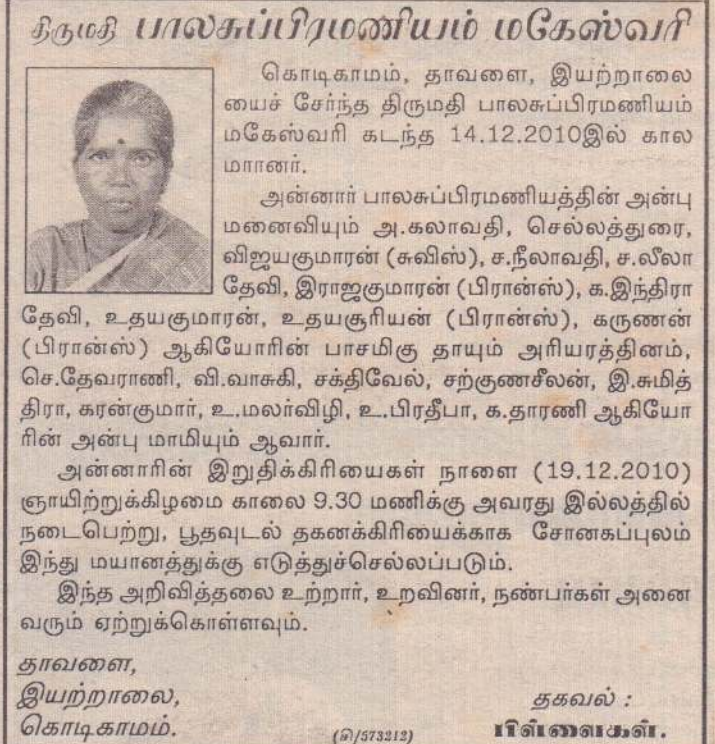 திருமதி பாலசுப்பிரமணியம் மகேஸ்வரி
கொடிகாமம், தாவளை, இயற்றாலை
யைச் சேர்ந்த திருமதி பாலசுப்பிரமணியம்
மகேஸ்வரி கடந்த 14.12.2010இல் கால
மானார்.
அன்னார் பாலசுப்பிரமணியத்தின் அன்பு
மனைவியும் அ.கலாவதி, செல்லத்துரை,
விஜயகுமாரன் (சுவிஸ்), ச.நீலாவதி, ச.லீலா
தேவி, இராஜகுமாரன் (பிரான்ஸ்), க.இந்திரா
தேவி, உதயகுமாரன், உதயசூரியன் (பிரான்ஸ்), கருணன்
(பிரான்ஸ்) ஆகியோரின் பாசமிகு தாயும் அரியரத்தினம்,
செ.தேவராணி, வி.வாசுகி, சக்திவேல், சற்குணசீலன், இ.சுமித்
திரா, கரன்குமார், உ.மலர்விழி, உ.பிரதீபா, க.தாரணி ஆகியோ
ரின் அன்பு மாமியும் ஆவார்.
அன்னாரின் இறுதிக்கிரியைகள் நாளை (19.12.2010)
ஞாயிற்றுக்கிழமை காலை 9.30 மணிக்கு அவரது இல்லத்தில்
நடைபெற்று, பூதவுடல் தகனக்கிரியைக்காக சோனகப்புலம்
இந்து மயானத்துக்கு எடுத்துச்செல்லப்படும்.
இந்த அறிவித்தலை உற்றார், உறவினர், நண்பர்கள் அனை
வரும் ஏற்றுக்கொள்ளவும்.
தாவளை,
இயற்றாலை,
கொடிகாமம்.
தகவல் :
பிள்ளைகள்.
(சி/573212)